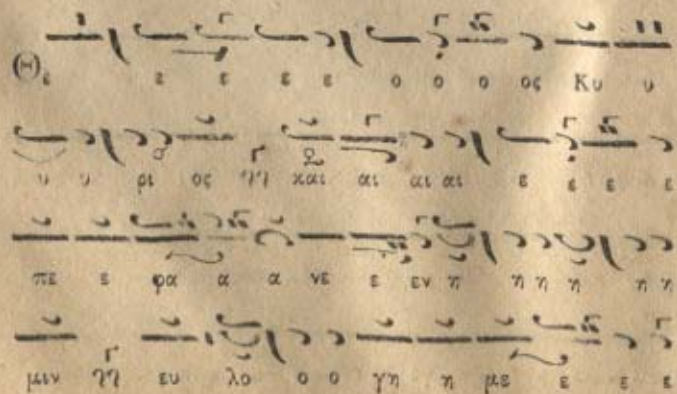 Θε ε ε ε ε ο ο ο ος Κυ υ
υ υ ρι ος και αι αι αι ε ε ε ε
πε ε φα α α νε ε εν η η η η η η
μιν ευ λο ο ο γη η με ε ε ε